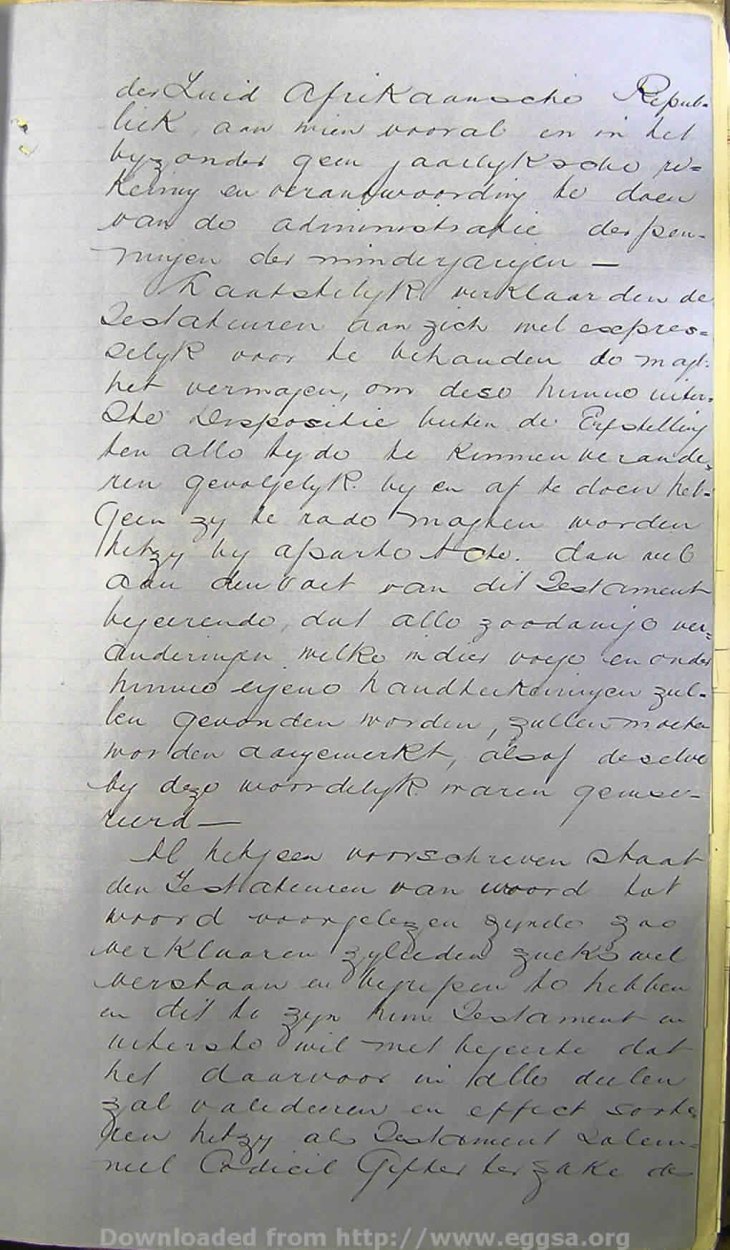 der Zuid Afrikaansche Repub-
liek, aan wien vooral en in het
byzonder geen jaarlyksche re=
kening en verantwoording te doen
van de administratie der pen-
ningen der minderjarigen —
Laatstelyk verklaarden de
Testateuren aan zich wel expres=
selyk voor te behouden de magt:
het vermogen, om dese hunne uiter-
ste Dispositie buiten de Erfstelling
ten alle tyde te kunnen verande-
ren gevolgelyk by en af te doen het-
geen zy te rade mogten worden
hetzy by aparte Acte. dan wel
aan den voet van dit Testament
begeerende, dat alle zoodanige ver=
anderingen welke in dier voege en onder
hunne eigene handteekeningen zul-
len gevonden worden, zullen moeten
worden aangemerkt, alsof deselve
by deze woordelyk waren geinse-
reerd —
Al hetgeen voorschreven staat
den Testateuren van woord tot
woord voorgelezen zynde zoo
verklaaren zylieden zulks wel
verstaan en begrepen te hebben
en dit te zyn hun Testament en
uiterste wil met begeerte dat
het daarvoor in alle deelen
zal valideeren en effect sorte-
ren hetzy als Testament Solem-
neel Codicil Gifte ter zake des
Downloaded from http://www.eggsa.org